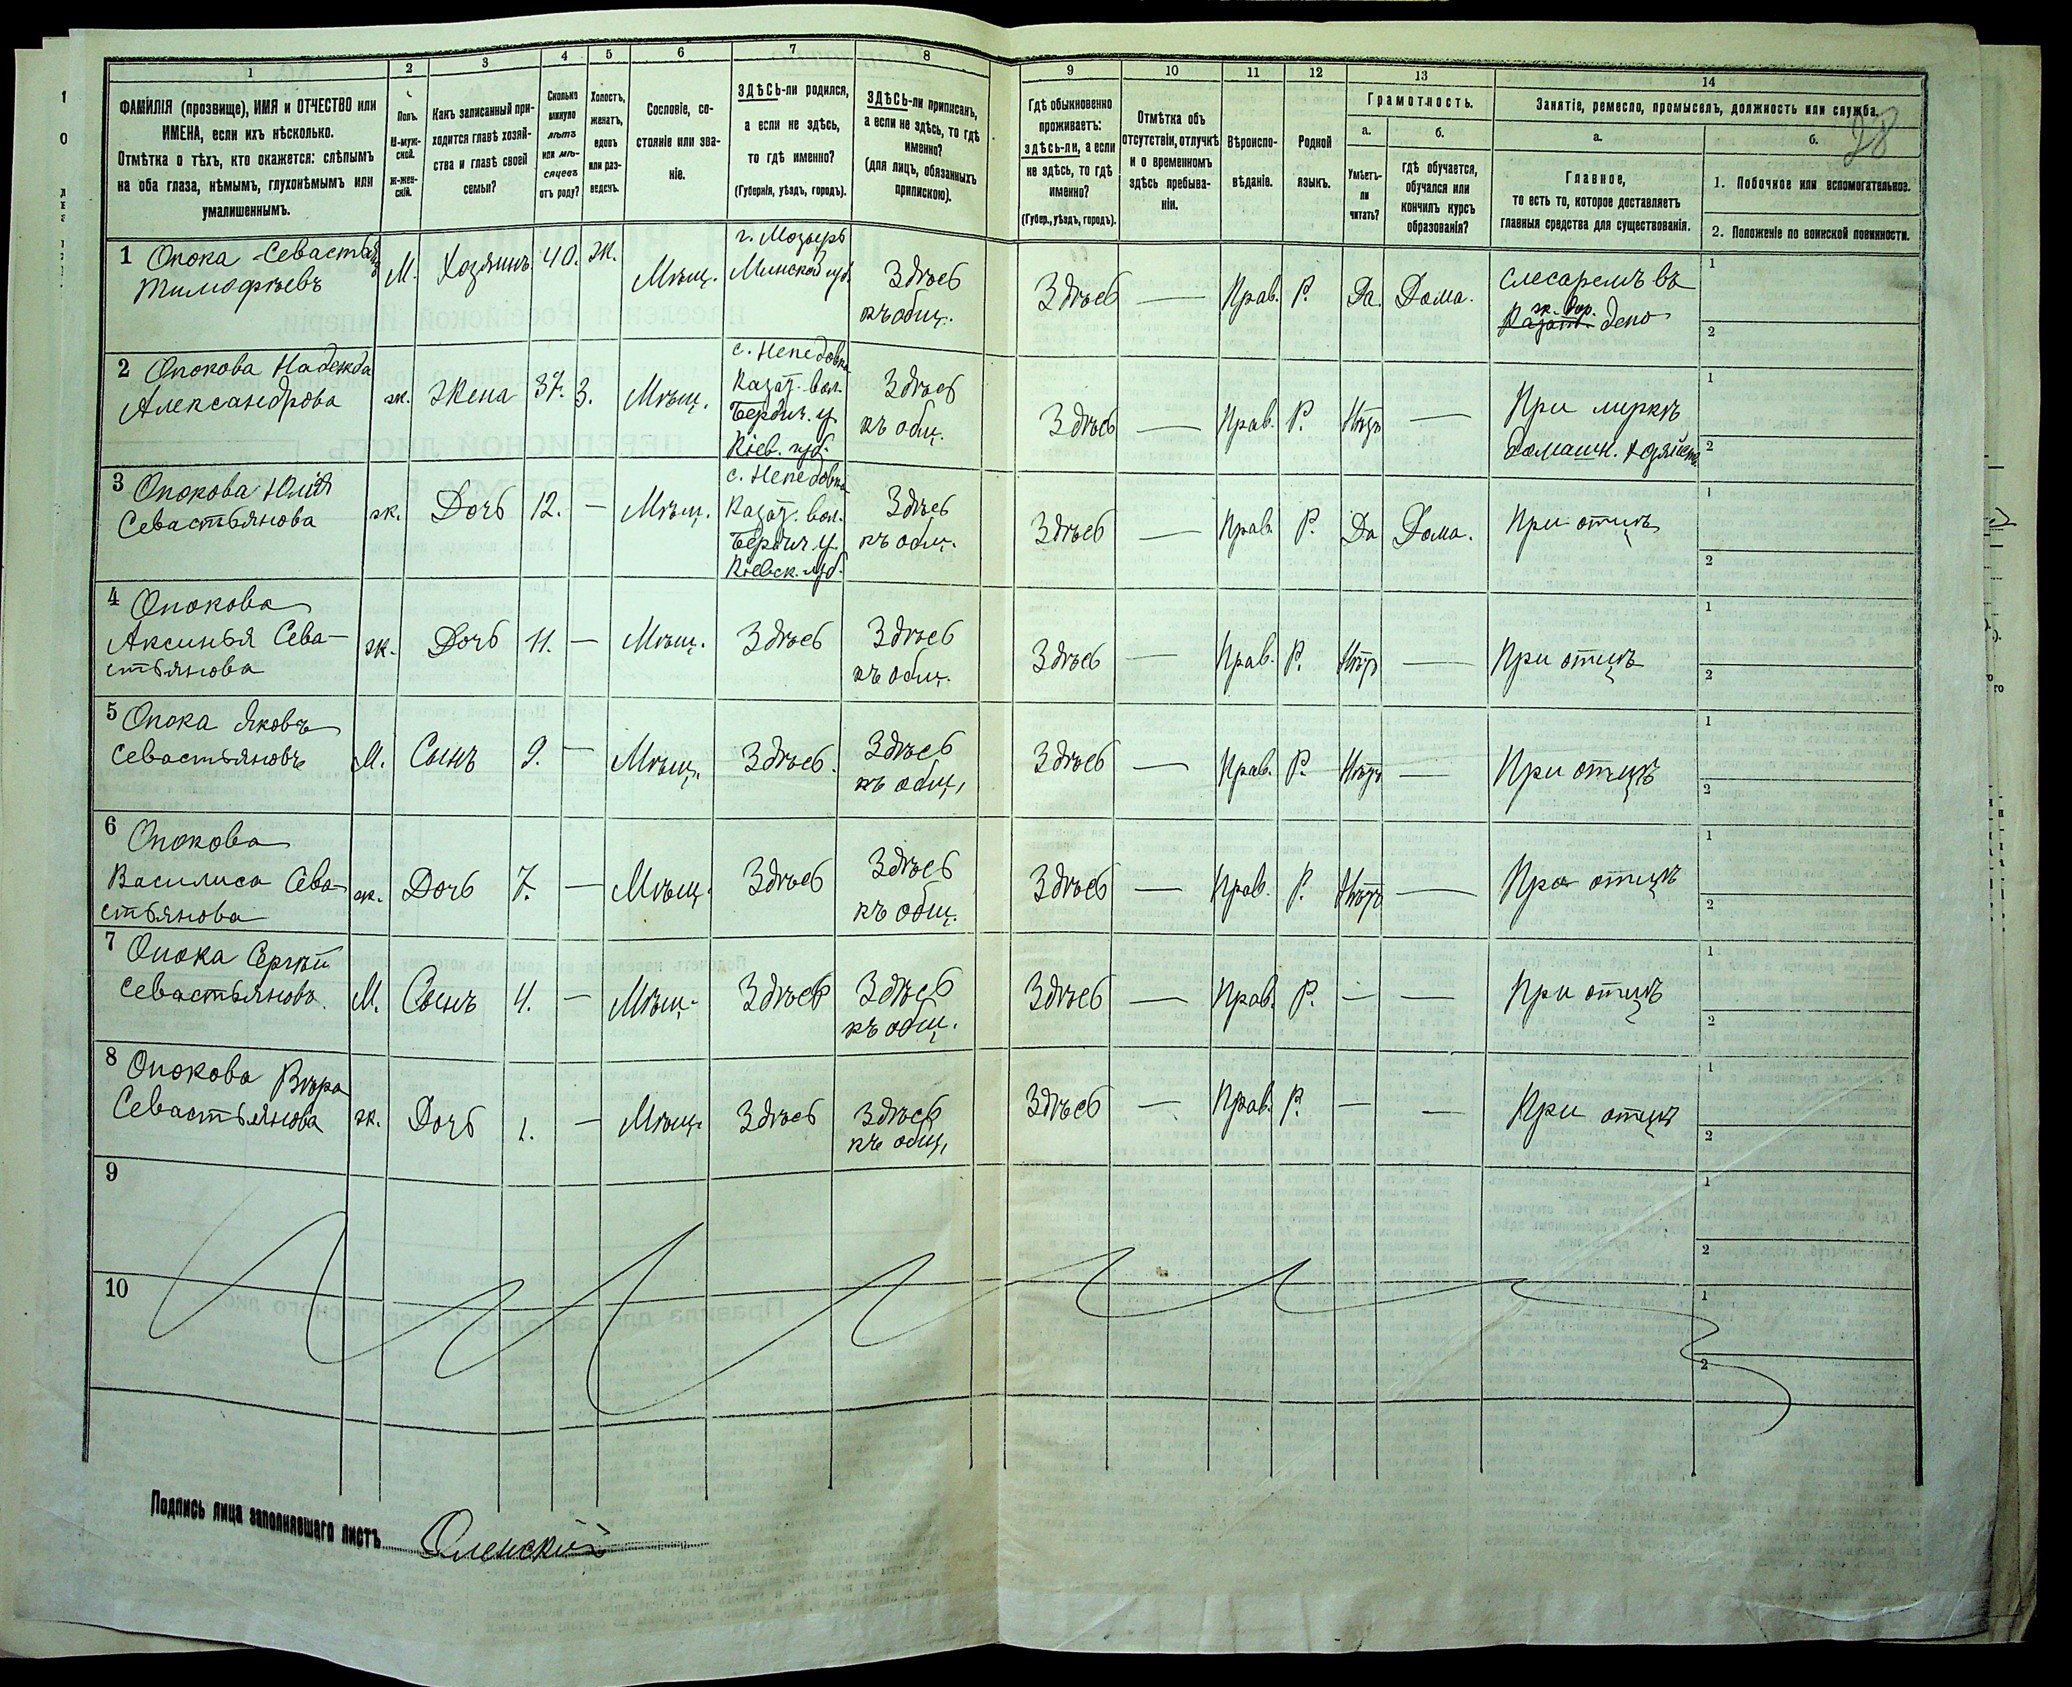 1 2 3 4 5 6 7 8 9 10 11 12 13 14
ФАМИЛІЯ (прозвище), ИМЯ и ОТЧЕСТВО или
ИМЕНА, если ихъ нѣсколько.
Отмѣтка о тѣхъ, кто окажется: слѣпымъ
на оба глаза, нѣмымъ, глухонѣмымъ или
умалишеннымъ.
Полъ.
М-муж-
ской.
ж-жен-
скій.
Какъ записанный при-
ходится главѣ хозяй-
ства и главѣ своей
семьи?
Сколько
минуло
лѣтъ
или мѣ-
сяцевъ
отъ роду?
Холостъ,
женатъ,
вдовъ
или раз-
веденъ.
Сословіе, со-
стояніе или зва-
ніе.
ЗДѢСЬ-ли родился,
а если не здѣсь,
то гдѣ именно?
(Губернія, уѣздъ, городъ).
ЗДѢСЬ-ли приписанъ,
а если не здѣсь, то гдѣ
именно?
(для лицъ, обязанныхъ
припискою).
Гдѣ обыкновенно
проживаетъ:
здѣсь-ли, а если
не здѣсь, то гдѣ
именно?
(Губер., уѣздъ, городъ).
Отмѣтка объ
отсутствіи, отлучкѣ
и о временномъ
здѣсь пребыва-
ніи.
Вѣроиспо-
вѣданіе.
Родной
языкъ.
Грамотность.
а.
Умѣетъ-
ли
читать?
б.
гдѣ обучается,
обучался или
кончилъ курсъ
образованія?
Занятіе, ремесло, промыселъ, должность или служба.
28
а.
Главное,
то есть то, которое доставляетъ
главныя средства для существованія.
б.
1. Побочное или вспомогательное.
2. Положеніе по воинской повинности.
1 Опока Севастьянъ
Тимофѣевъ
М. Хозяинъ 40. ж. Мѣщ.
г. Мозырь
Минской губ.
Здѣсь
къ общ.
Здѣсь — Прав. Р. Да. Дома.
Слесаремъ въ
ж. дор.
Казат. депо
1
2
2 Опокова Надежда
Александрова
ж. Жена 37. З. Мѣщ.
с. Непедовка
Казат. вол.
Бердич. у.
Кіев. губ.
Здѣсь
къ общ.
Здѣсь — Прав. Р. Нѣтъ —
При мужѣ
домашн. хозяйств.
1
2
3 Опокова Юлія
Севастьянова
ж. Дочь 12. — Мѣщ.
с. Непедовка
Казат. вол.
Бердич. у.
Кіевск. губ.
Здѣсь
къ общ.
Здѣсь — Прав. Р. Да Дома. При отцѣ
1
2
4 Опокова
Аксинья Сева-
стьянова
ж. Дочь 11. — Мѣщ. Здѣсь
Здѣсь
къ общ.
Здѣсь — Прав. Р. Нѣтъ — При отцѣ
1
2
5 Опока Яковъ
Севастьяновъ
М. Сынъ 9. — Мѣщ. Здѣсь.
Здѣсь
къ общ.
Здѣсь — Прав. Р. Нѣтъ — При отцѣ
1
2
6 Опокова
Василиса Сева-
стьянова
ж. Дочь 7. — Мѣщ. Здѣсь
Здѣсь
къ общ.
Здѣсь — Прав. Р. Нѣтъ — При отцѣ
1
2
7 Опока Сергѣй
Севастьяновъ
М. Сынъ 4. — Мѣщ. Здѣсь
Здѣсь
къ общ.
Здѣсь — Прав. Р. — — При отцѣ
1
2
8 Опокова Вѣра
Севастьянова
ж. Дочь 1. — Мѣщ. Здѣсь
Здѣсь
къ общ.
Здѣсь — Прав. Р. — — При отцѣ
1
2
9
1
2
10
1
2
Подпись лица заполнявшаго листъ Оленскій